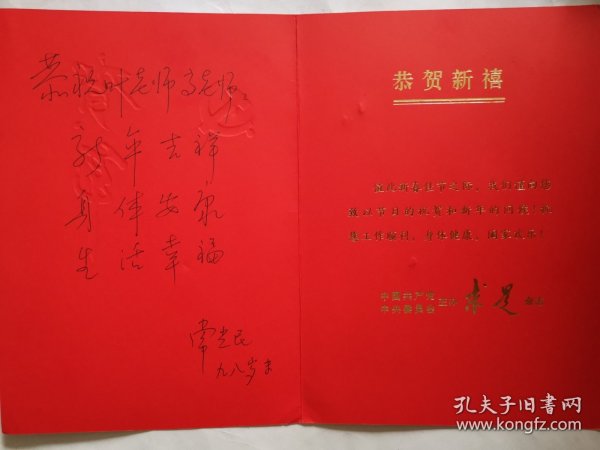 恭祝叶老师高老师
新年吉祥
身体安康
生活幸福
常光民
九八岁末
恭贺新禧
值此新春佳节之际，我们谨向您
致以节日的祝贺和新年的问候！祝
您工作顺利，身体健康，阖家欢乐！
中国共产党
中央委员会 主办 求是
孔夫子旧书网
www.kongfz.com